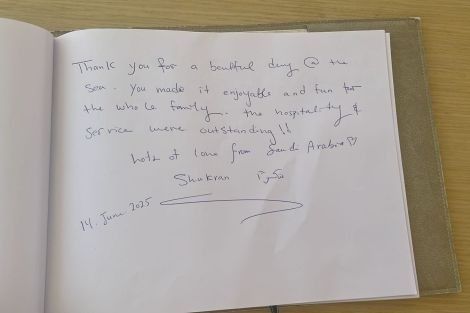 Thank you for a beautiful day @ the
sea. You made it enjoyable and fun for
the whole family. the hospitality &
Service were outstanding!!
Lots of love from Saudi Arabia ♡
Shukran شكرًا
14. June 2025